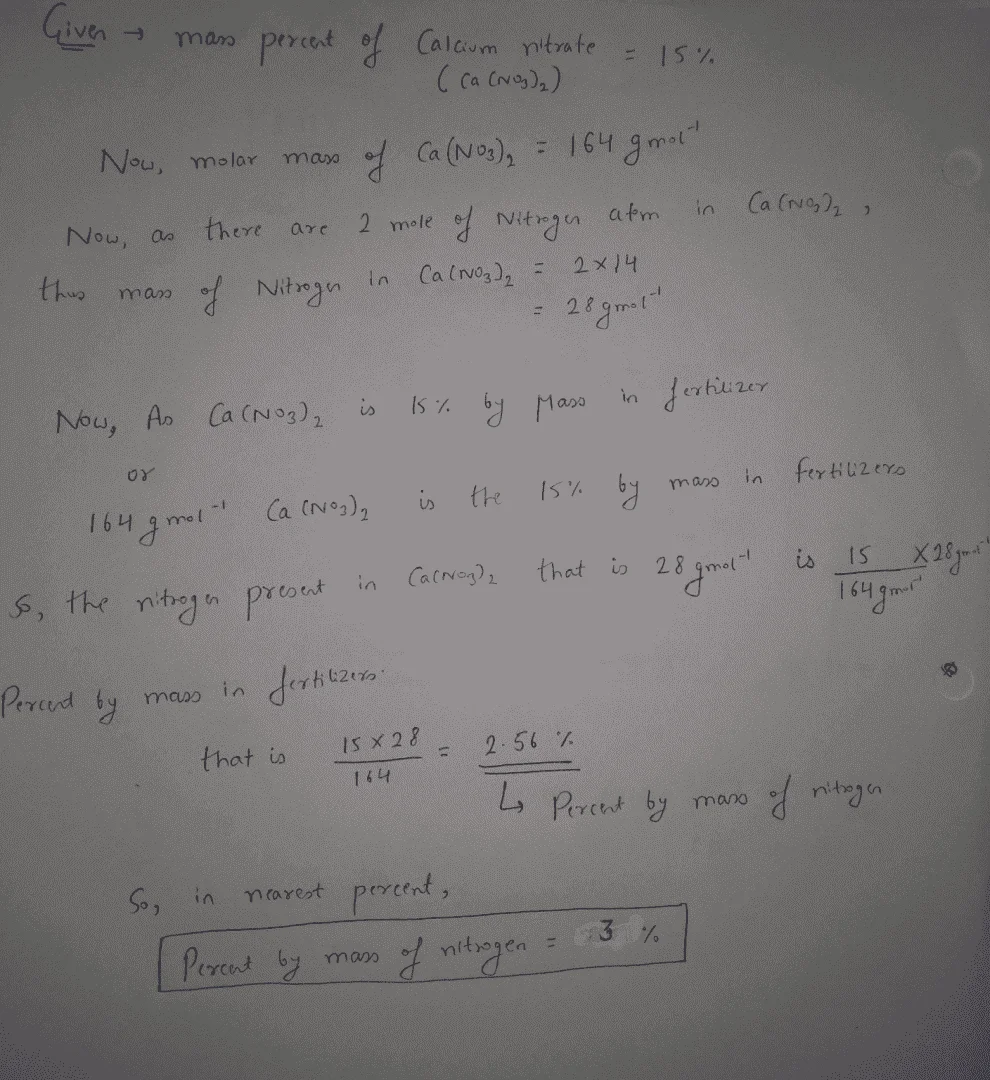 Given → mass percent of Calcium nitrate = 15 %
(Ca(NO3)2)
Now, molar mass of Ca(NO3)2 = 164 g mol-1
Now, as there are 2 mole of Nitrogen atom in Ca(NO3)2 ,
thus mass of Nitrogen in Ca(NO3)2 = 2×14
= 28 gmol-1
Now, As Ca(NO3)2 is 15% by Mass in fertilizer
or
164 g mol-1 Ca(NO3)2 is the 15% by mass in fertilizers
So, the nitrogen present in Ca(NO3)2 that is 28 gmol-1 is 15 / 164 gmol-1 × 28 gmol-1
Percent by mass in fertilizers.
that is 15 × 28 / 164 = 2.56 %
↳ Percent by mass of nitrogen
So, in nearest percent,
Percent by mass of nitrogen = 3 %